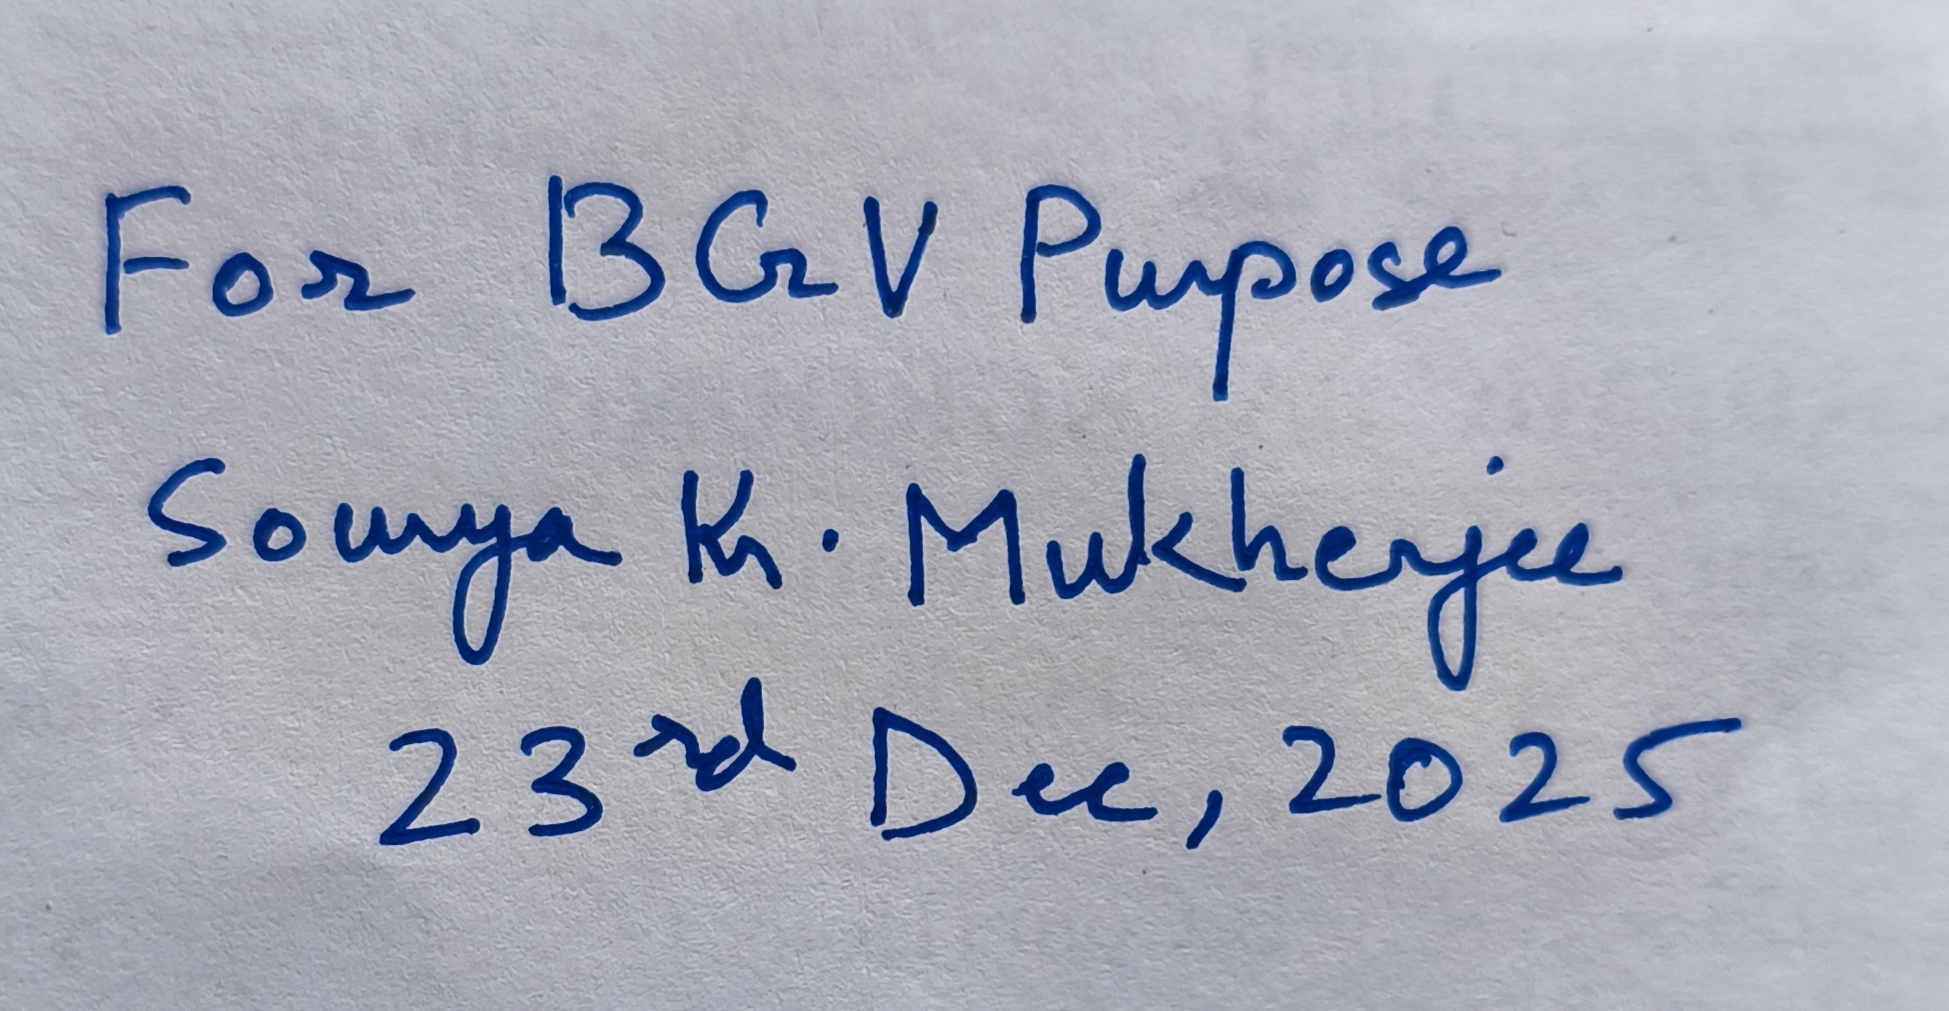 For BGV Purpose
Sourya Kr. Mukherjee
23rd Dec, 2025